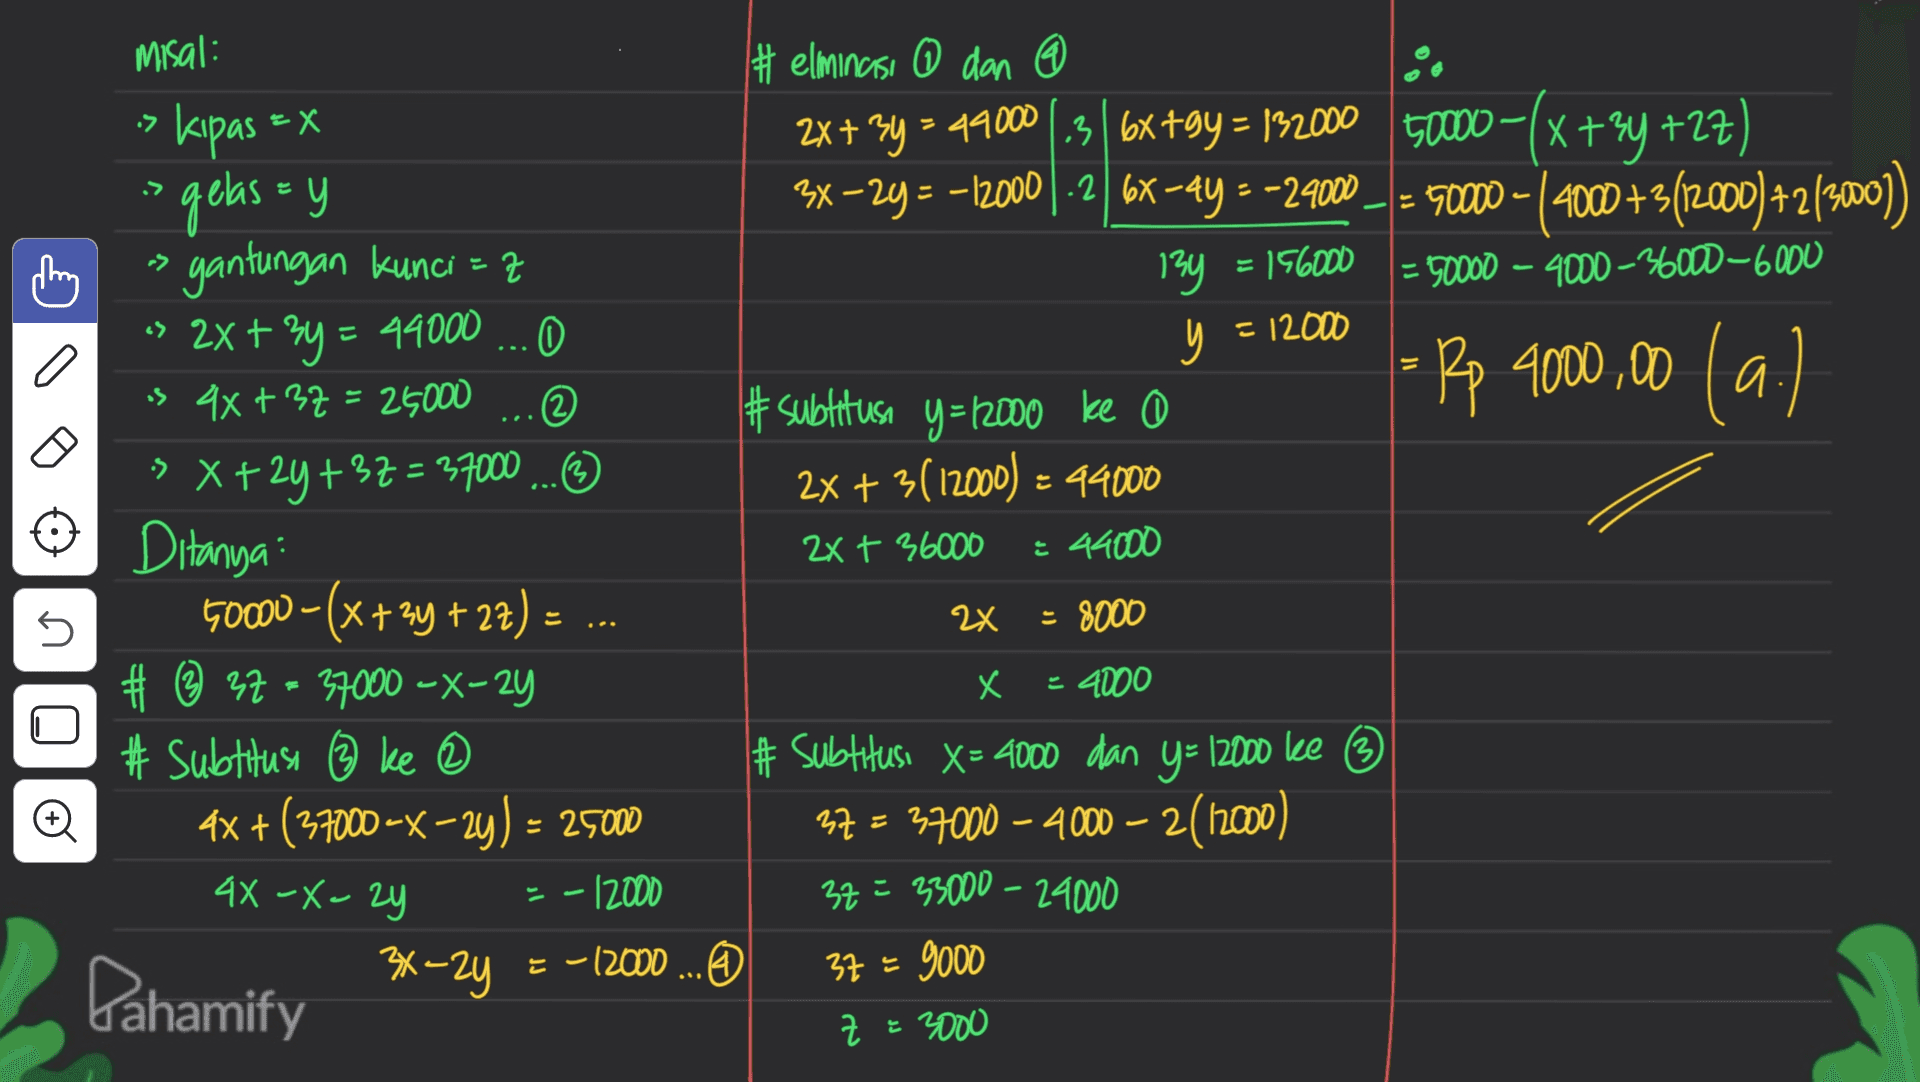 misal:
•> kipas = x
•> gelas = y
•> gantungan kunci = z
•> 2x + 3y = 44000 ... ①
•> 4x + 3z = 25000 ... ②
•> x + 2y + 3z = 37000 ... ③
Ditanya:
50000 - (x + 3y + 2z) = ...
# ③ 3z = 37000 - x - 2y
# Subtitusi ③ ke ②
4x + (37000 - x - 2y) = 25000
4x - x - 2y = -12000
3x - 2y = -12000 ... ④
# elminasi ① dan ④
2x + 3y = 44000 | .3 | 6x + 9y = 132000
3x - 2y = -12000 | .2 | 6x - 4y = -24000 -
13y = 156000
y = 12000
# subtitusi y = 12000 ke ①
2x + 3(12000) = 44000
2x + 36000 = 44000
2x = 8000
x = 4000
# Subtitusi x = 4000 dan y = 12000 ke ③
3z = 37000 - 4000 - 2(12000)
3z = 33000 - 24000
3z = 9000
z = 3000
∴
50000 - (x + 3y + 2z)
= 50000 - (4000 + 3(12000) + 2(3000))
= 50000 - 4000 - 36000 - 6000
= Rp 4000,00 (a.)
Pahamify